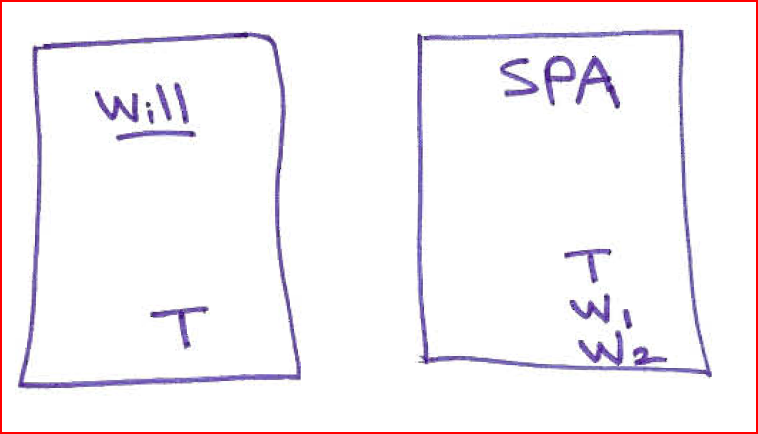 Will
T
SPA
T
W1
W2